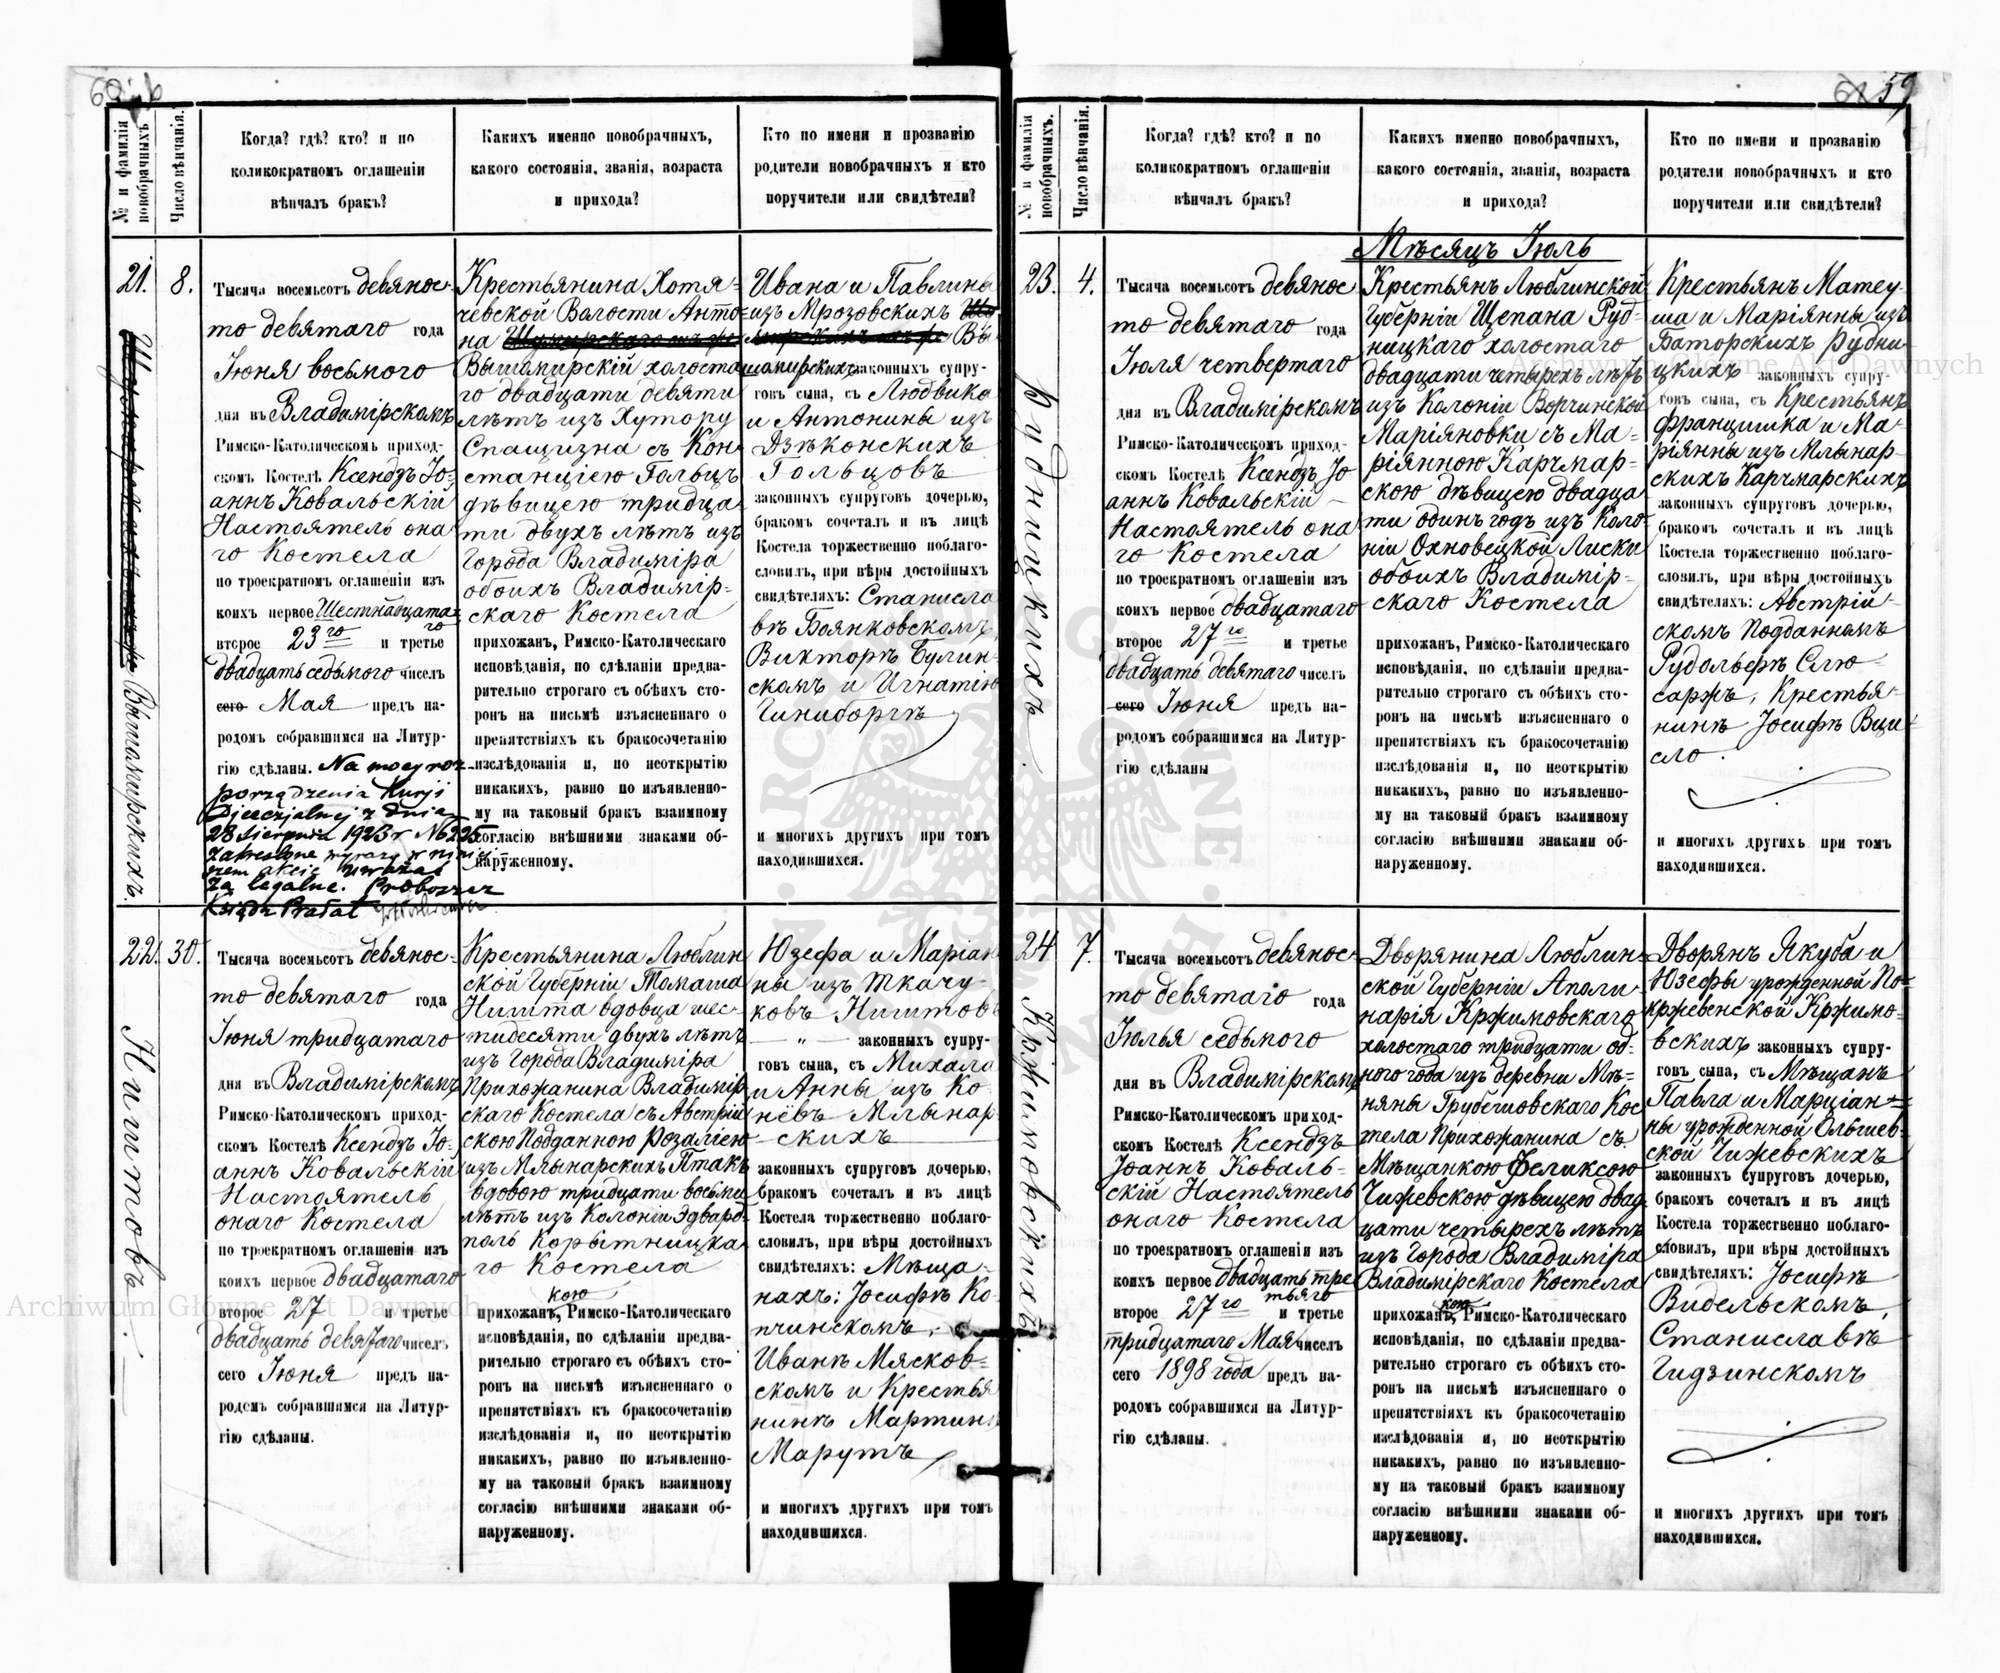 60 b
№ и фамилія новобрачныхъ.
Число вѣнчанія.
Когда? гдѣ? кто? и по
коликократномъ оглашеніи
вѣнчалъ бракъ?
Какихъ именно новобрачныхъ,
какого состоянія, званія, возраста
и прихода?
Кто по имени и прозванію
родители новобрачныхъ и кто
поручители или свидѣтели?
21.
Вышомирскихъ.
8.
Тысяча восемьсотъ девянос-
то девятаго года
Іюня восьмого
дня въ Владимірскомъ
Римско-Католическомъ приход-
скомъ Костелѣ Ксендзъ Іо-
аннъ Ковальскій
Настоятель она
го Костела
по троекратномъ оглашеніи изъ
коихъ первое Шестнадцата
го
второе 23го и третье
двадцать седьмого чиселъ
сего Мая предъ на-
родомъ собравшимся на Литур-
гію сдѣланы. Na mocy roz-
porządzenia Kurji
Djecezjalnej z dnia
28 sierpnia 1923 r № 225
zakreslone wyrazy w niniej
szem akcie uważać
za legalne. Proboszcz
Ksiądz Prałat
Крестьянина Хотя-
чевской Волости Анто-
на
Вышомирскій холоста
го двадцати девяти
лѣтъ изъ Хутору
Спащизна съ Кон-
станціею Гольцъ
дѣвицею тридца
ти двухъ лѣтъ изъ
Города Владиміра
обоихъ Владимір-
скаго Костела
прихожанъ, Римско-Католическаго
исповѣданія, по сдѣланіи предва-
рительно строгаго съ обѣихъ сто-
ронъ на письмѣ изъясненнаго о
препятствіяхъ къ бракосочетанію
изслѣдованія и, по неоткрытію
никакихъ, равно по изъявленно-
му на таковый бракъ взаимному
согласію внѣшними знаками об-
наруженному.
Ивана и Павлины
изъ Мрозовскихъ
Вы
шомирскихъ законныхъ супру-
говъ сына, съ Людвика
и Антонины изъ
Дзѣконскихъ
Гольцовъ
законныхъ супруговъ дочерью,
бракомъ сочеталъ и въ лицѣ
Костела торжественно поблаго-
словилъ, при вѣры достойныхъ
свидѣтеляхъ: Станисла
вѣ Боянковскомъ,
Викторѣ Булин-
скомъ и Игнатію
Гиниборгѣ
и многихъ другихъ при томъ
находившихся.
22.
Нишповъ.
30.
Тысяча восемьсотъ девянос-
то девятаго года
Іюня тридцатаго
дня въ Владимірскомъ
Римско-Католическомъ приход-
скомъ Костелѣ Ксендзъ Іо-
аннъ Ковальскій
Настоятель
онаго Костела
по троекратномъ оглашеніи изъ
коихъ первое двадцатаго
второе 27 и третье
двадцать девятаго чиселъ
сего Іюня предъ на-
родомъ собравшимся на Литур-
гію сдѣланы.
Крестьянина Люблин
ской Губерніи Томаша
вдовца шес-
тидесяти двухъ лѣтъ
изъ Города Владиміра
Прихожанина Владимір
скаго Костела съ Австрій
скою Подданною Розаліею
изъ Млынарскихъ Птакъ
вдовою тридцати восьми
лѣтъ изъ Колоніи Эдвард-
поль Корытницка
го Костела
кою
прихожанъ, Римско-Католическаго
исповѣданія, по сдѣланіи предва-
рительно строгаго съ обѣихъ сто-
ронъ на письмѣ изъясненнаго о
препятствіяхъ къ бракосочетанію
изслѣдованія и, по неоткрытію
никакихъ, равно по изъявленно-
му на таковый бракъ взаимному
согласію внѣшними знаками об-
наруженному.
Юзефа и Маріан
ны изъ Ткачу-
ковъ
— „ — законныхъ супру-
говъ сына, съ Михала
и Анны изъ Ко-
нёвъ Млынар-
скихъ
законныхъ супруговъ дочерью,
бракомъ сочеталъ и въ лицѣ
Костела торжественно поблаго-
словилъ, при вѣры достойныхъ
свидѣтеляхъ: Мѣща-
нахъ: Іосифѣ Ко-
пчинскомъ,
Иванѣ Мясков-
скомъ и Крестья
нинѣ Мартинѣ
Марутъ
и многихъ другихъ при томъ
находившихся.
59
№ и фамилія новобрачныхъ.
Число вѣнчанія.
Когда? гдѣ? кто? и по
коликократномъ оглашеніи
вѣнчалъ бракъ?
Какихъ именно новобрачныхъ,
какого состоянія, званія, возраста
и прихода?
Кто по имени и прозванію
родители новобрачныхъ и кто
поручители или свидѣтели?
Мѣсяцъ Іюль
23.
Рудницкихъ
4.
Тысяча восемьсотъ девянос
то девятаго года
Іюля четвертаго
дня въ Владимірскомъ
Римско-Католическомъ приход-
скомъ Костелѣ Ксендзъ Іо
аннъ Ковальскій —
Настоятель она
го Костела
по троекратномъ оглашеніи изъ
коихъ первое двадцатаго
второе 27го и третье
двадцать девятаго чиселъ
сего Іюня предъ на-
родомъ собравшимся на Литур-
гію сдѣланы
Крестьянъ Люблинской
Губерніи Щепана Руд-
ницкаго холостаго
двадцати четырехъ лѣтъ
изъ Колоніи Ворчинской
Маріяновки съ Ма-
ріянною Карчмар-
скою дѣвицею двадца
ти одинъ годъ изъ Коло
ніи Охновецкой Лиски
обоихъ Владимір-
скаго Костела
прихожанъ, Римско-Католическаго
исповѣданія, по сдѣланіи предва-
рительно строгаго съ обѣихъ сто-
ронъ на письмѣ изъясненнаго о
препятствіяхъ къ бракосочетанію
изслѣдованія и, по неоткрытію
никакихъ, равно по изъявленно-
му на таковый бракъ взаимному
согласію внѣшними знаками об-
наруженному.
Крестьянъ Матеу
ша и Маріянны изъ
Баторскихъ Рудни-
цкихъ законныхъ супру-
говъ сына, съ Крестьянъ
Францишка и Ма-
ріянны изъ Млынар-
скихъ Карчмарскихъ
законныхъ супруговъ дочерью,
бракомъ сочеталъ и въ лицѣ
Костела торжественно поблаго-
словилъ, при вѣры достойныхъ
свидѣтеляхъ: Австрій-
скомъ Подданномъ
Рудольфѣ Слю-
сарѣ, Крестья-
нинѣ Іосифѣ Вци-
сло.
и многихъ другихъ при томъ
находившихся.
24
Кржимовскихъ.
7.
Тысяча восемьсотъ девянос-
то девятаго года
Іюлья седьмого
дня въ Владимірскомъ
Римско-Католическомъ приход-
скомъ Костелѣ Ксендзъ
Іоаннъ Коваль-
скій Настоятель
онаго Костела
по троекратномъ оглашеніи изъ
коихъ первое двадцать тре
тьяго
второе 27го и третье
тридцатаго Мая чиселъ
сего 1898 года предъ на-
родомъ собравшимся на Литур-
гію сдѣланы.
Дворянина Люблин-
ской Губерніи Аполи-
нарія Кржимовскаго
холостаго тридцати од-
ного года изъ деревни Мѣ-
няны Грубешовскаго Кос
тела Прихожанина съ
Мѣщанкою Феликсою
Чижевскою дѣвицею двад
цати четырехъ лѣтъ
изъ Города Владиміра
Владимірскаго Костела
кою
прихожанъ, Римско-Католическаго
исповѣданія, по сдѣланіи предва-
рительно строгаго съ обѣихъ сто-
ронъ на письмѣ изъясненнаго о
препятствіяхъ къ бракосочетанію
изслѣдованія и, по неоткрытію
никакихъ, равно по изъявленно-
му на таковый бракъ взаимному
согласію внѣшними знаками об-
наруженному.
Дворянъ Якуба и
Юзефы урожденной По-
кржевенской Кржимо-
вскихъ законныхъ супру-
говъ сына, съ Мѣщанъ
Павла и Марціан-
ны урожденной Ольшев-
ской Чижевскихъ
законныхъ супруговъ дочерью,
бракомъ сочеталъ и въ лицѣ
Костела торжественно поблаго-
словилъ, при вѣры достойныхъ
свидѣтеляхъ: Іосифѣ
Видельскомъ,
Станиславѣ
Гидзинскомъ
и многихъ другихъ при томъ
находившихся.
Archiwum Główne Akt Dawnych
Archiwum Główne Akt Dawnych